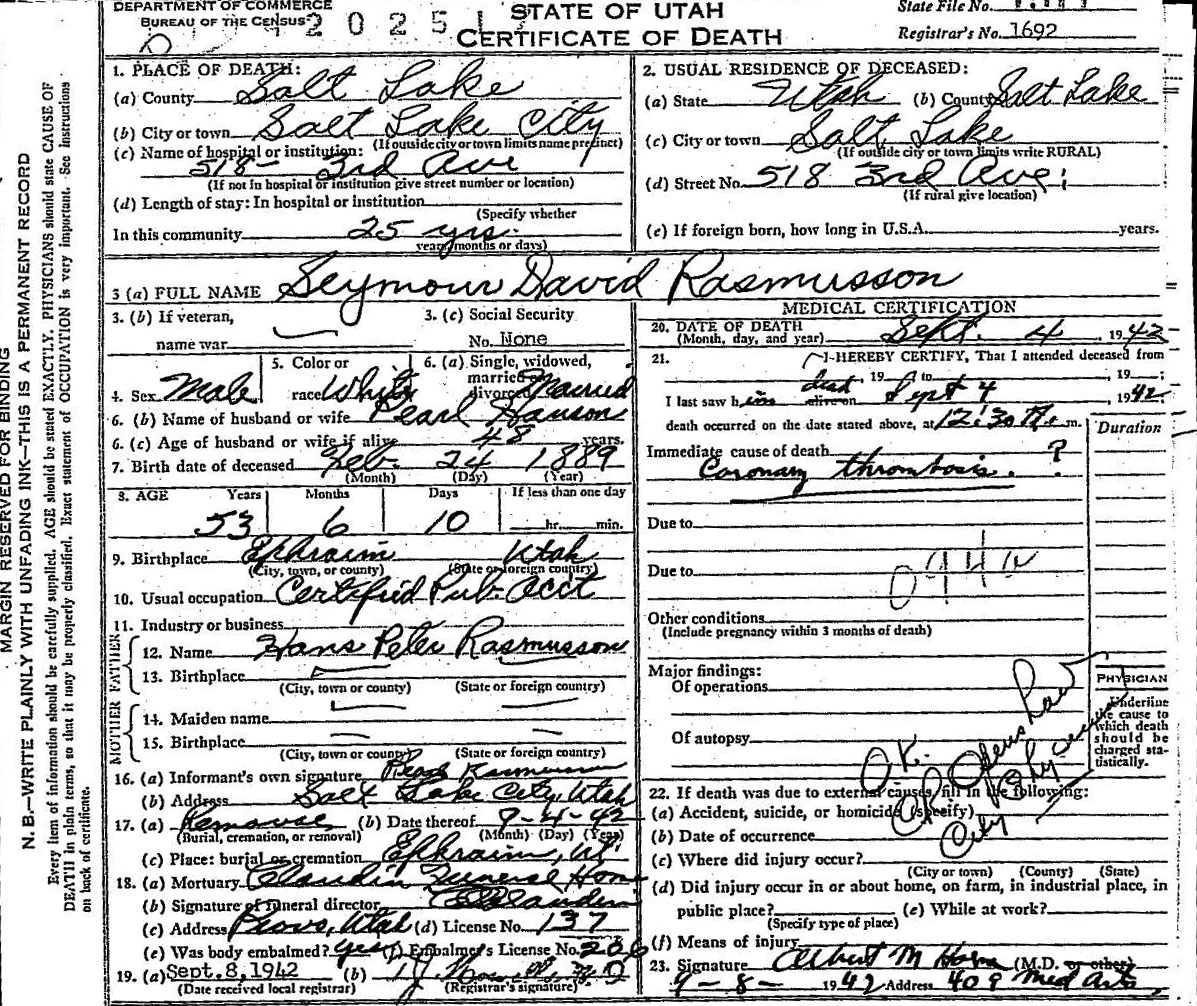 DEPARTMENT OF COMMERCE
BUREAU OF THE CENSUS
2 0 2 5 1
STATE OF UTAH
CERTIFICATE OF DEATH
State File No.
Registrar's No. 1692
MARGIN RESERVED FOR BINDING
N. B.—WRITE PLAINLY WITH UNFADING INK—THIS IS A PERMANENT RECORD
Every item of information should be carefully supplied. AGE should be stated EXACTLY. PHYSICIANS should state CAUSE OF
DEATH in plain terms, so that it may be properly classified. Exact statement of OCCUPATION is very important. See Instructions
on back of certificate.
1. PLACE OF DEATH:
(a) County Salt Lake
(b) City or town Salt Lake City
(If outside city or town limits name precinct)
(c) Name of hospital or institution:
518 - 3rd Ave
(If not in hospital or institution give street number or location)
(d) Length of stay: In hospital or institution
(Specify whether
In this community 25 yrs.
years, months or days)
2. USUAL RESIDENCE OF DECEASED:
(a) State Utah (b) County Salt Lake
(c) City or town Salt Lake
(If outside city or town limits write RURAL)
(d) Street No. 518 3rd Ave;
(If rural give location)
(e) If foreign born, how long in U.S.A. years.
3 (a) FULL NAME Seymour David Rasmusson
3. (b) If veteran,
name war
3. (c) Social Security
No. None
4. Sex Male
5. Color or
race White
6. (a) Single, widowed,
married or
divorced Married
6. (b) Name of husband or wife Pearl Hanson
6. (c) Age of husband or wife if alive 48 years.
7. Birth date of deceased Feb. 24 1889
(Month) (Day) (Year)
8. AGE Years Months Days If less than one day
53 6 10 hr. min.
9. Birthplace Ephraim Utah
(City, town, or county) (State or foreign country)
10. Usual occupation Certified Pub. Acct
11. Industry or business
FATHER
12. Name Hans Peter Rasmusson
13. Birthplace
(City, town or county) (State or foreign country)
MOTHER
14. Maiden name
15. Birthplace
(City, town or county) (State or foreign country)
16. (a) Informant's own signature Pearl Rasmusson
(b) Address Salt Lake City, Utah
17. (a) Remove (b) Date thereof 9-4-42
(Burial, cremation, or removal) (Month) (Day) (Year)
(c) Place: burial or cremation Ephraim, Ut.
18. (a) Mortuary Claudin Funeral Home
(b) Signature of funeral director Claudin
(c) Address Provo, Utah (d) License No. 137
(e) Was body embalmed? Yes (f) Embalmer's License No. 206
19. (a) Sept. 8, 1942 (b)
(Date received local registrar) (Registrar's signature)
MEDICAL CERTIFICATION
20. DATE OF DEATH
(Month, day, and year) Sept. 4, 1942
21. I HEREBY CERTIFY, That I attended deceased from
, 19 to , 19 ;
I last saw him dead alive on Sept 4 1942
death occurred on the date stated above, at 12:30 m.
Duration
Immediate cause of death
Coronary thrombosis. ?
Due to
Due to
Other conditions
(Include pregnancy within 3 months of death)
Major findings:
Of operations
Of autopsy
PHYSICIAN
Underline
the cause to
which death
should be
charged sta-
tistically.
O.K.
City
22. If death was due to external causes, fill in the following:
(a) Accident, suicide, or homicide (specify)
(b) Date of occurrence
(c) Where did injury occur?
(City or town) (County) (State)
(d) Did injury occur in or about home, on farm, in industrial place, in
public place? (e) While at work?
(Specify type of place)
(f) Means of injury
23. Signature Albert M Horn (M.D. or other)
9-8- 1942 Address 409 Med Arts